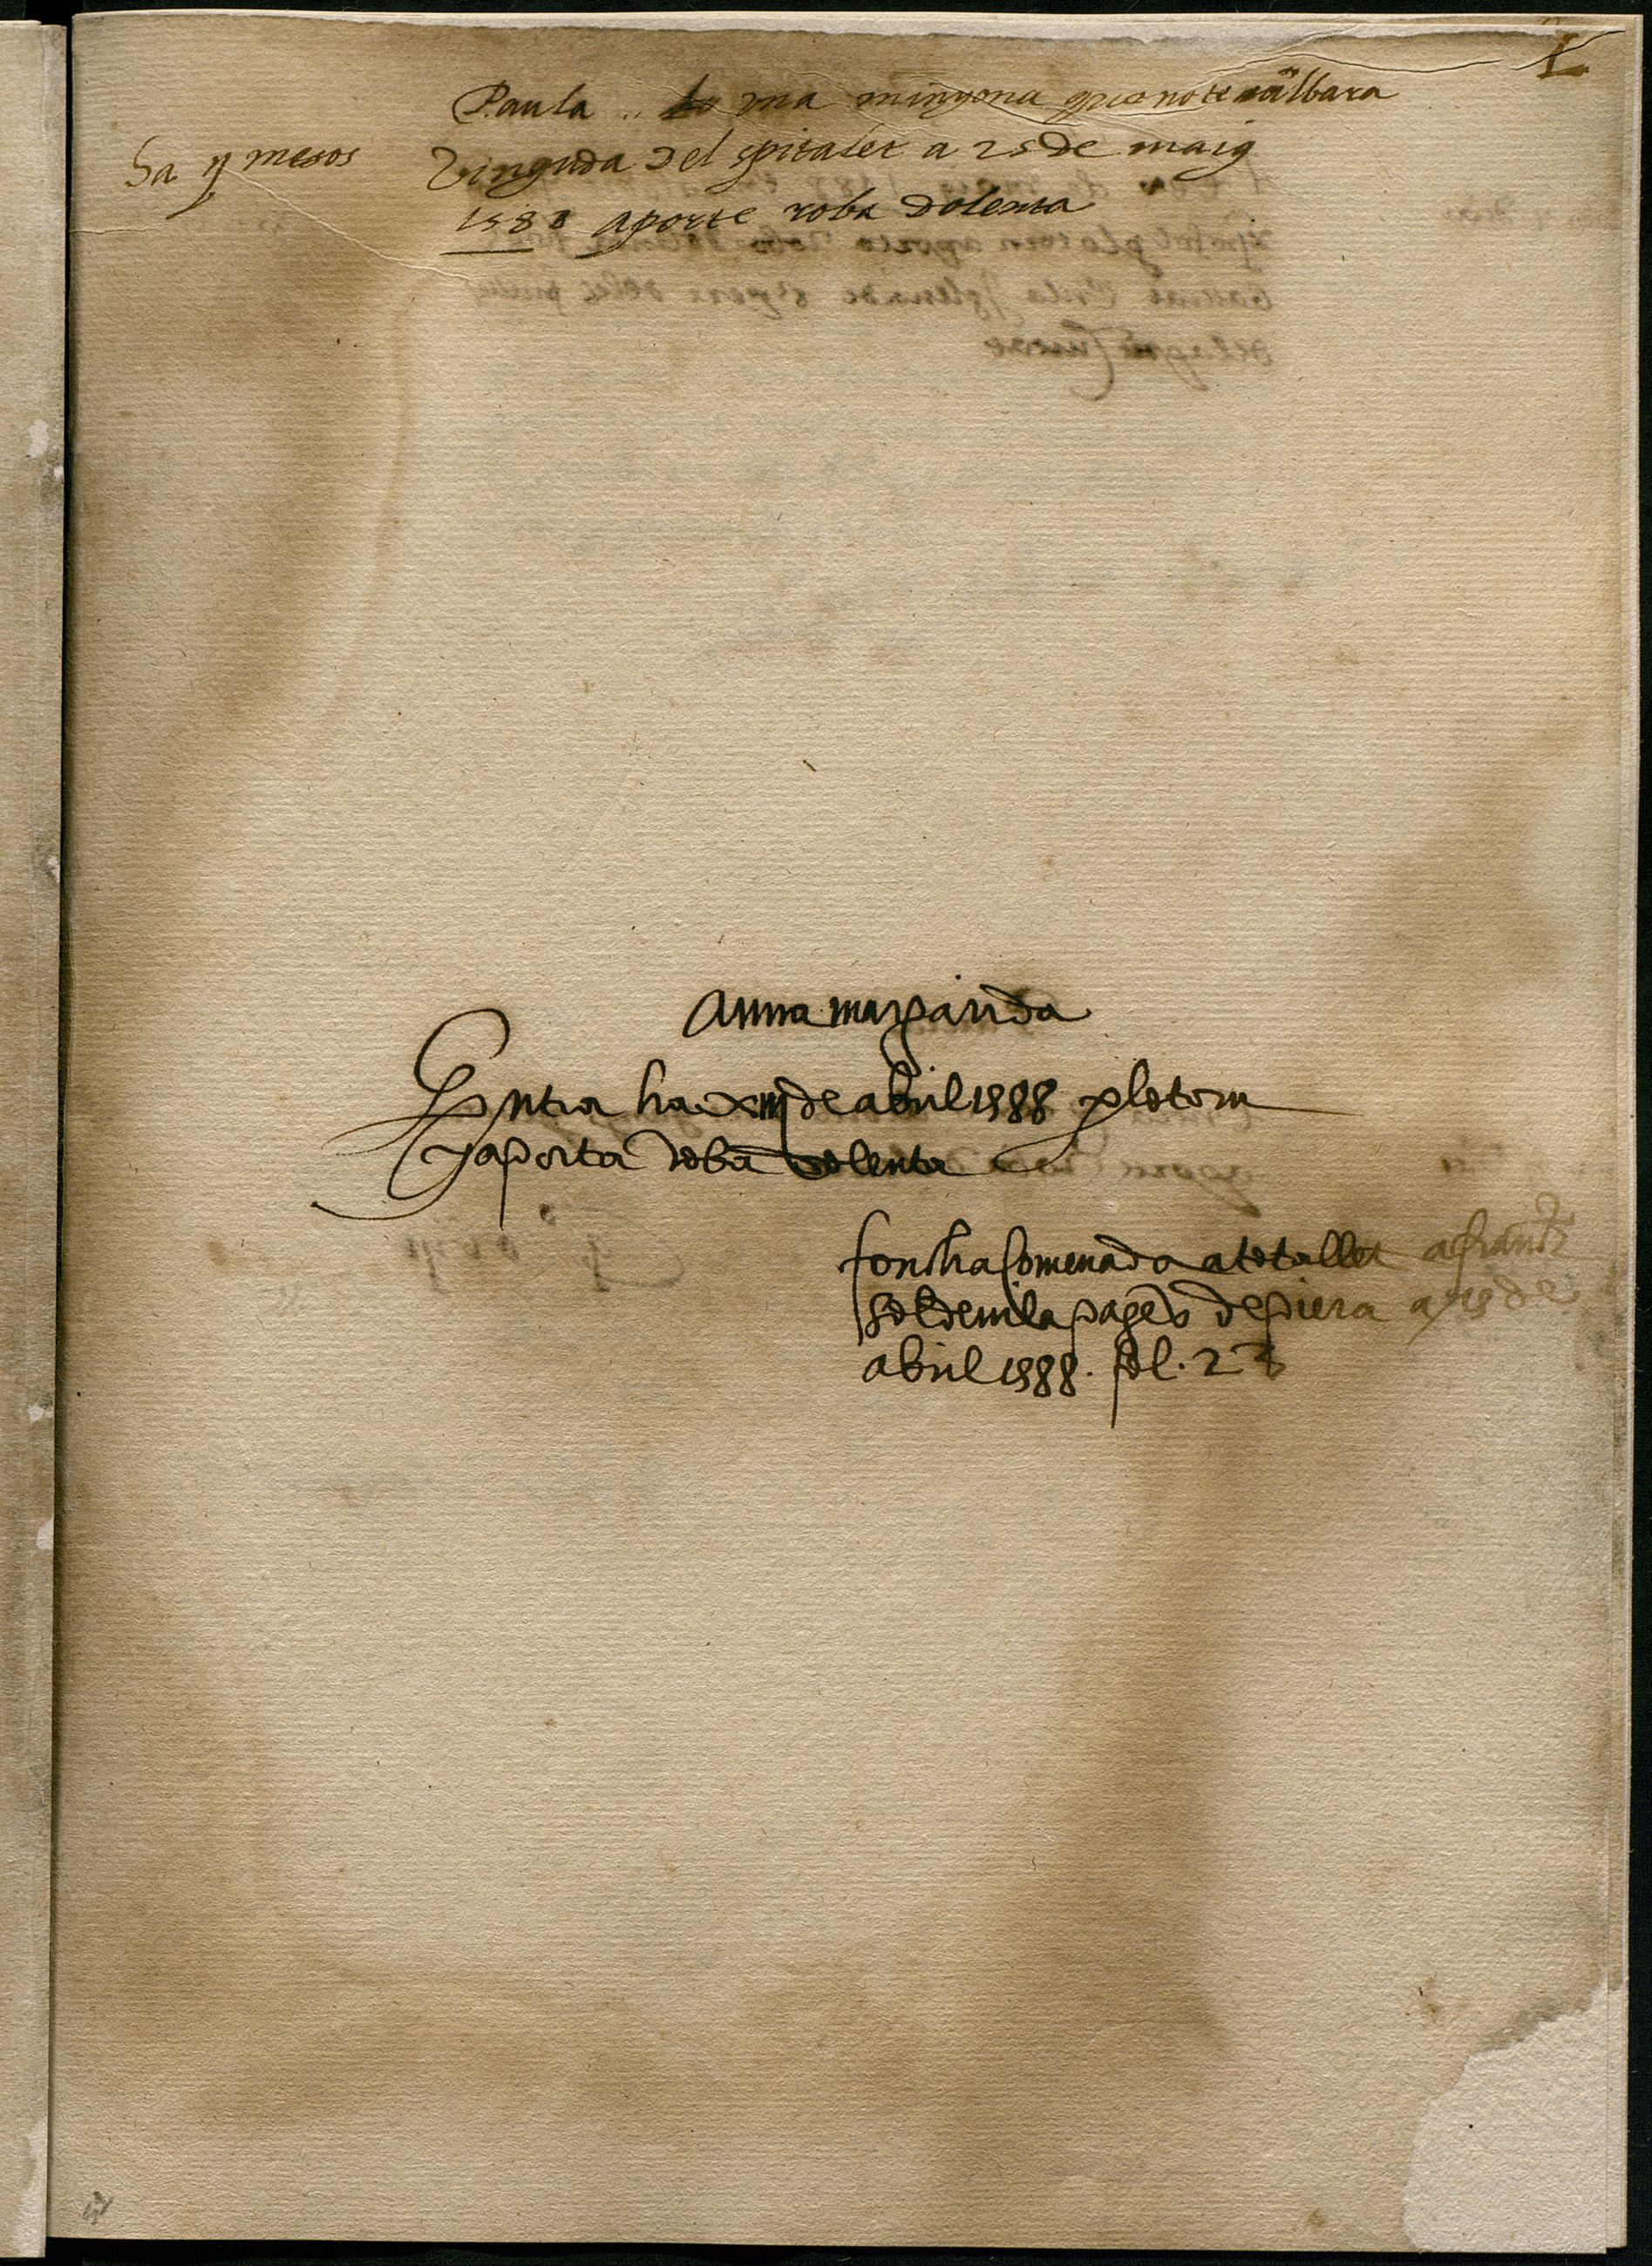 1
Paula .. una minyona que no te albara
ha y mesos
vinguda del spitalet a 25 de maig
1588 aporte roba dolenta
Anna margarida
Entra ha xiii de abril 1588 p lo torn
y aporta roba dolenta
fonch acomenada a
pages de piera a de
abril 1588. fol. 23